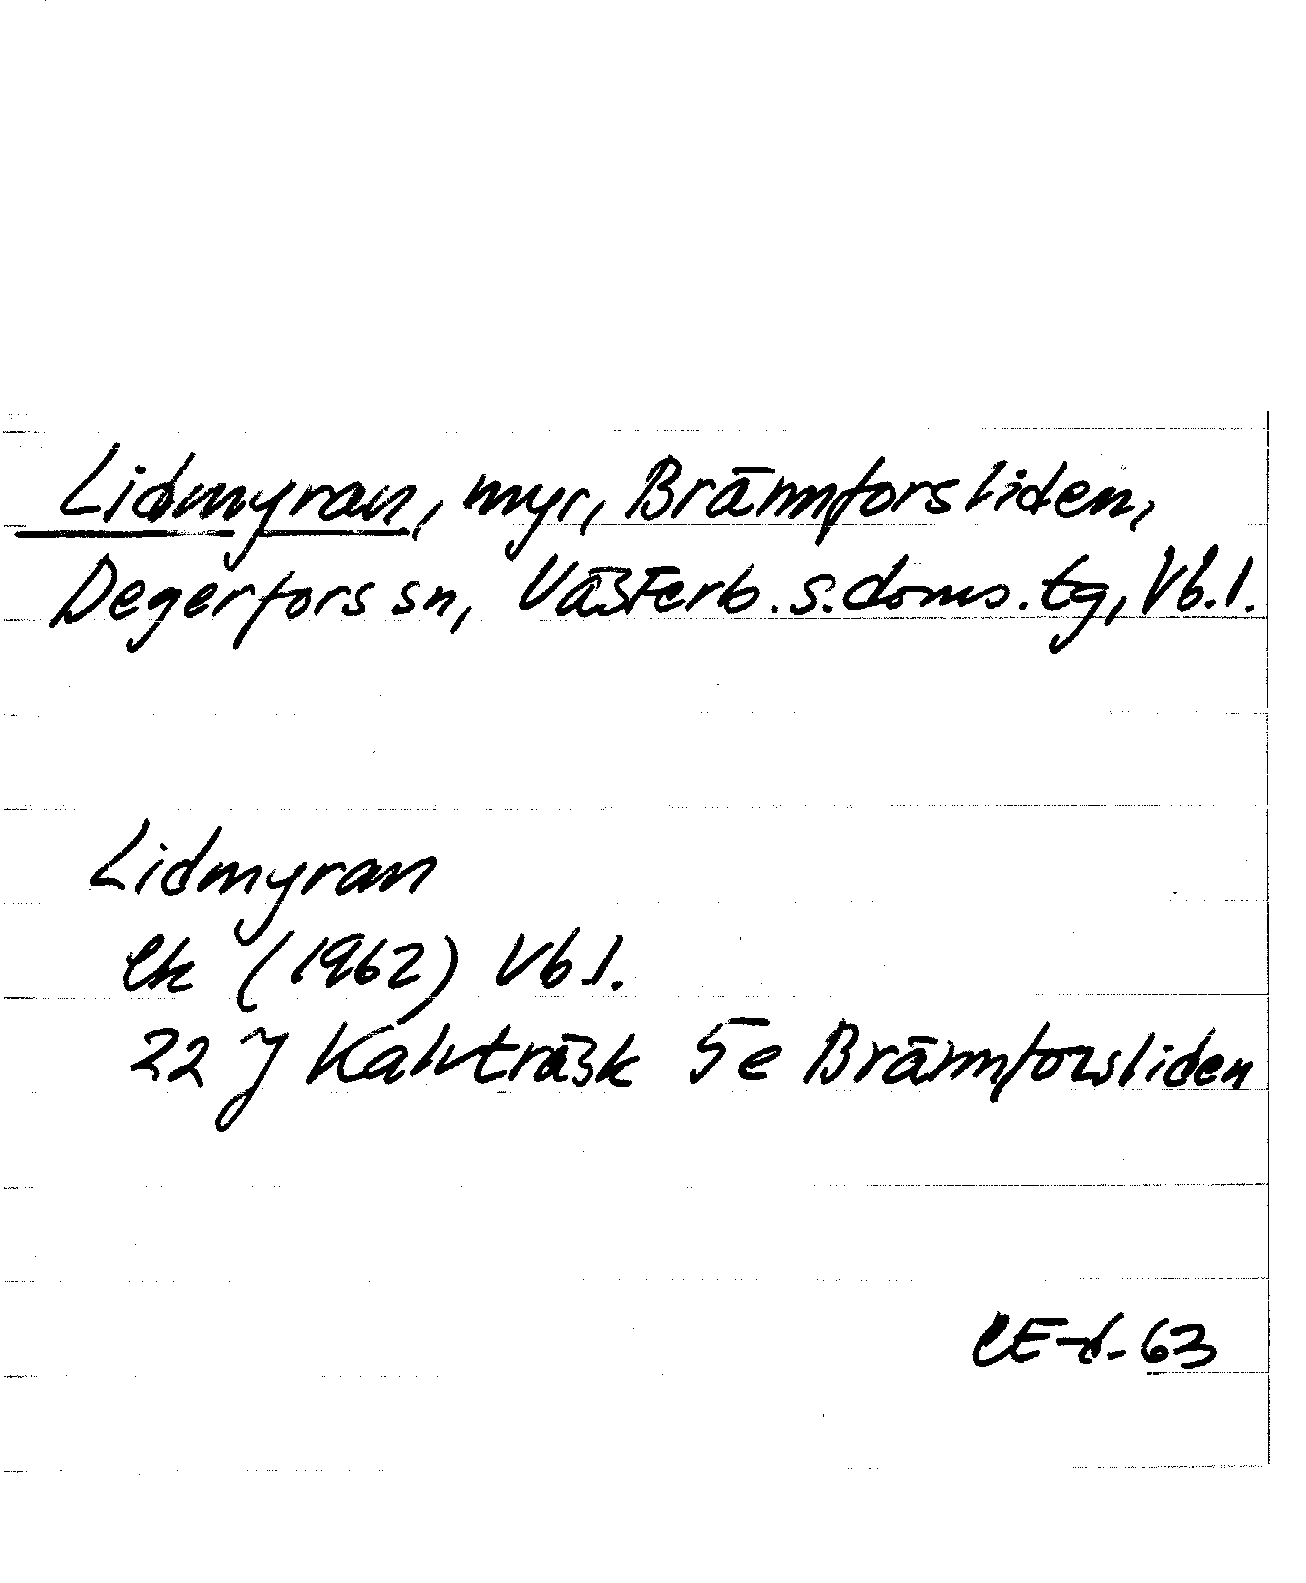 Lidmyran, myr, Brännforsliden,
Degerfors sn, Västerb. s. doms. tg, Vb. l.
Lidmyran
Ek (1962) Vb l.
22 J Kalvträsk 5e Brännforsliden
63